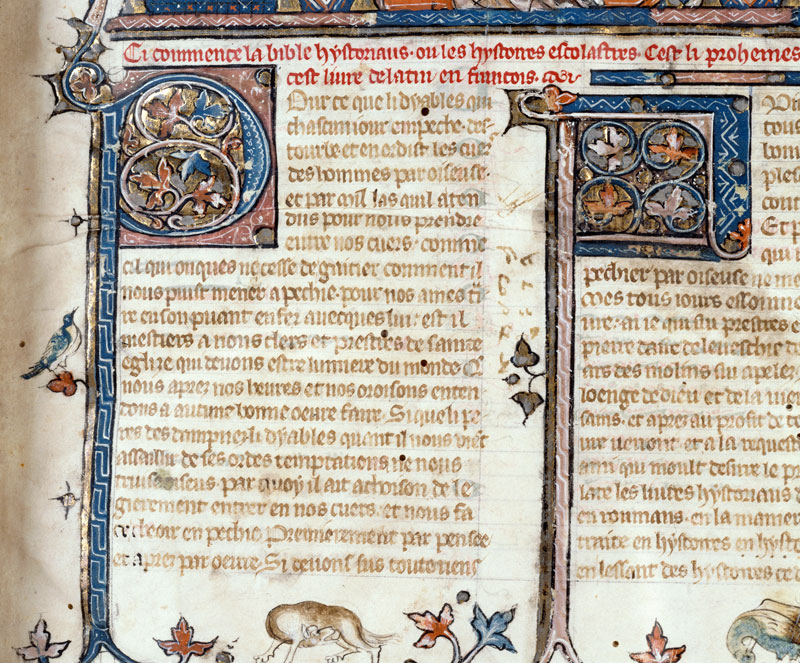 Ci commence la bible hystoriaus. ou les hystoires escolastres. Cest li prohemes
cest liure de latin en francois.
Pour ce que li dyables qui
chascun iour empeche. des
tourbe et enordist les cuers
des hommes par oiseuse.
et par mil las quil a ten
dus pour nous prendre
entre nos cuers. comme
cil qui onques ne cesse de gaitier comment il
nous puist mener a pechie. pour nos ames ti
re en son puant enfer auecques lui. est il
mestiers a nous clers et prestres de sainte
eglise qui deuons estre lumiere du monde
nous apres nos heures et nos oroisons enten
dons a aucune bonne oeure faire. Si que li
dyables quant il nous vient
assaillir de ses ordes temptations ne nous
truisse par quoy il ait achoison de le
gierement entrer en nos cuers. et nous fa
ce cheoir en pechie. Premierement par pensee
et apres par oeure. Si deuons sus toutoriens
tous
con
ples
cont
Et p
qui
pechier par oiseuse ne me
mes tous iours
ure. ai ie qui sui prestres e
pierre de leueschie
ars des molins sui apelez.
loenge de dieu et de la vier
sains. et apres au profit de
ure uenront. et a la request
ami qui moult desire le p
les liures hystoriaus
en roumans. en la manier
traite en hystoires en hysto
en lessant des hystoires ce